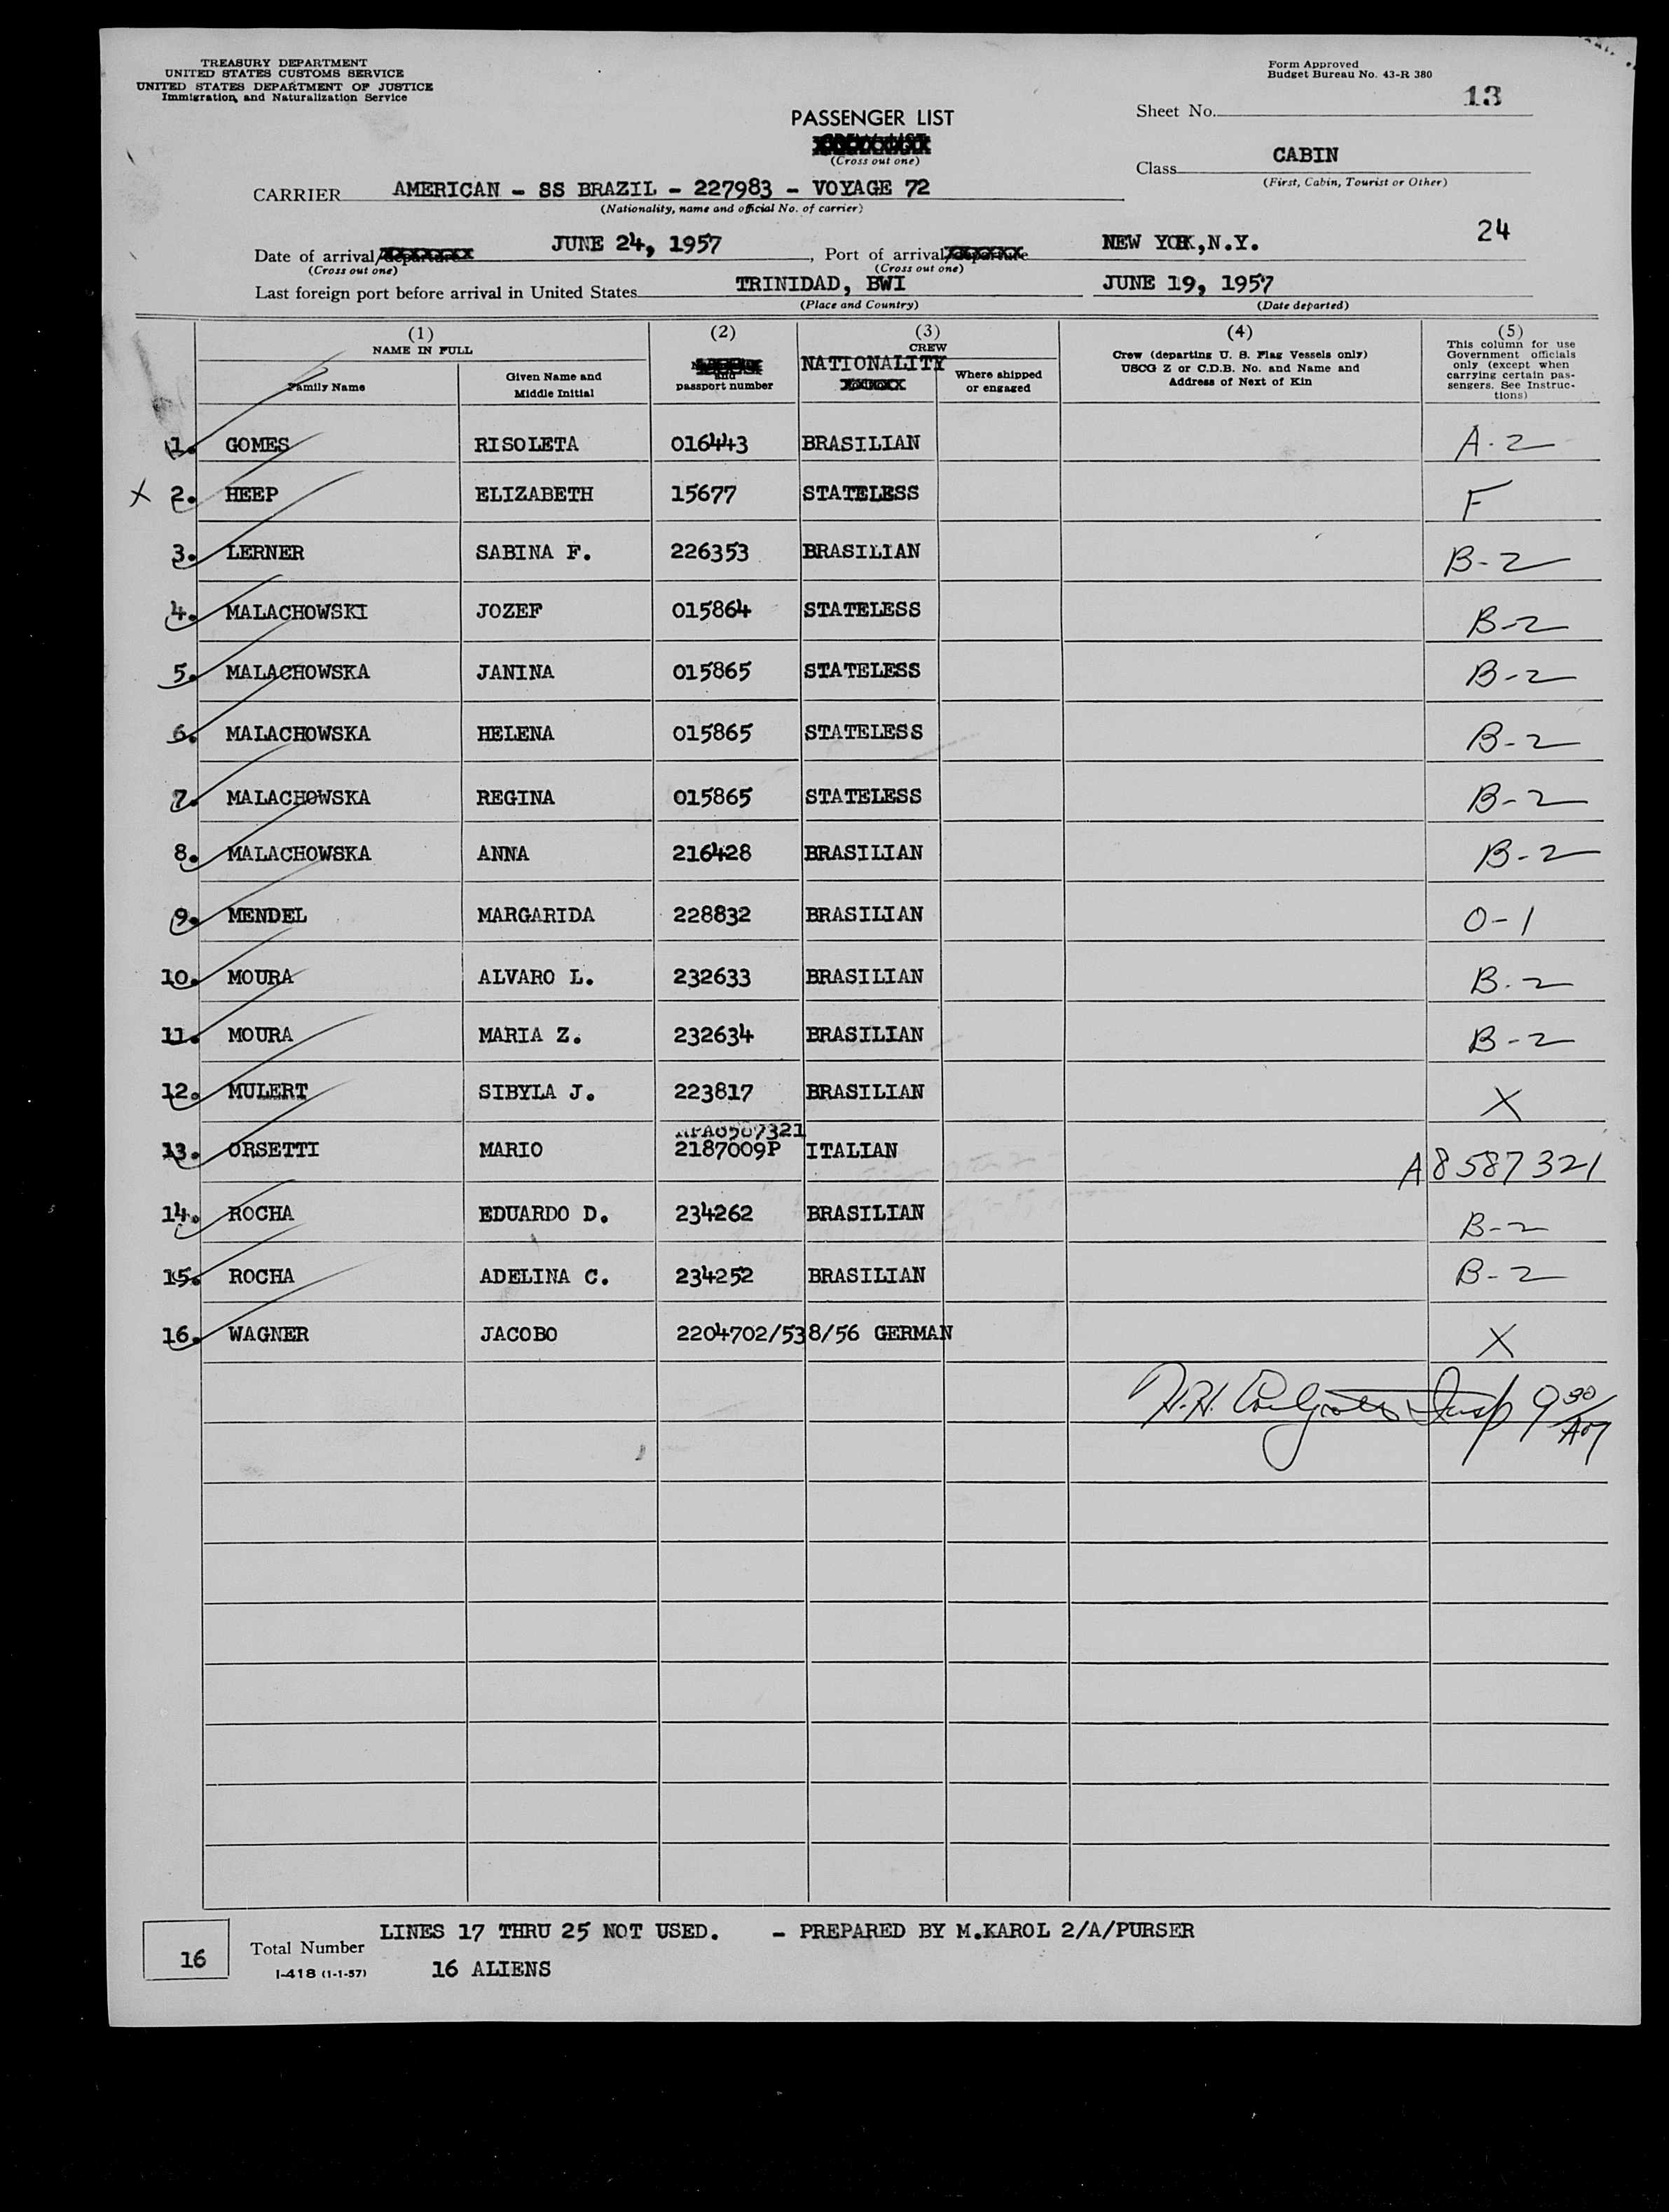 TREASURY DEPARTMENT
UNITED STATES CUSTOMS SERVICE
UNITED STATES DEPARTMENT OF JUSTICE
Immigration and Naturalization Service
Form Approved
Budget Bureau No. 43-R 380
PASSENGER LIST
(Cross out one)
Sheet No. 13
Class CABIN
(First, Cabin, Tourist or Other)
CARRIER AMERICAN - SS BRAZIL - 227983 - VOYAGE 72
(Nationality, name and official No. of carrier)
24
Date of arrival/departure JUNE 24, 1957, Port of arrival/departure NEW YORK, N.Y.
(Cross out one) (Cross out one)
Last foreign port before arrival in United States TRINIDAD, BWI JUNE 19, 1957
(Place and Country) (Date departed)
(1) (2) (3) (4) (5)
NAME IN FULL
Family Name
Given Name and
Middle Initial
and
passport number
CREW
NATIONALITY
Where shipped
or engaged
Crew (departing U. S. Flag Vessels only)
USCG Z or C.D.B. No. and Name and
Address of Next of Kin
This column for use
Government officials
only (except when
carrying certain pas-
sengers. See Instruc-
tions)
1. GOMES RISOLETA 016443 BRASILIAN A-2
X 2. HEEP ELIZABETH 15677 STATELESS F
3. LERNER SABINA F. 226353 BRASILIAN B-2
4. MALACHOWSKI JOZEF 015864 STATELESS B-2
5. MALACHOWSKA JANINA 015865 STATELESS B-2
6. MALACHOWSKA HELENA 015865 STATELESS B-2
7. MALACHOWSKA REGINA 015865 STATELESS B-2
8. MALACHOWSKA ANNA 216428 BRASILIAN B-2
9. MENDEL MARGARIDA 228832 BRASILIAN O-1
10. MOURA ALVARO L. 232633 BRASILIAN B-2
11. MOURA MARIA Z. 232634 BRASILIAN B-2
12. MULERT SIBYLA J. 223817 BRASILIAN X
13. ORSETTI MARIO 2187009P ITALIAN A8587321
14. ROCHA EDUARDO D. 234262 BRASILIAN B-2
15. ROCHA ADELINA C. 234252 BRASILIAN B-2
16. WAGNER JACOBO 2204702/538/56 GERMAN X
Insp 9 30/AM
LINES 17 THRU 25 NOT USED. - PREPARED BY M.KAROL 2/A/PURSER
16 Total Number
I-418 (1-1-57) 16 ALIENS